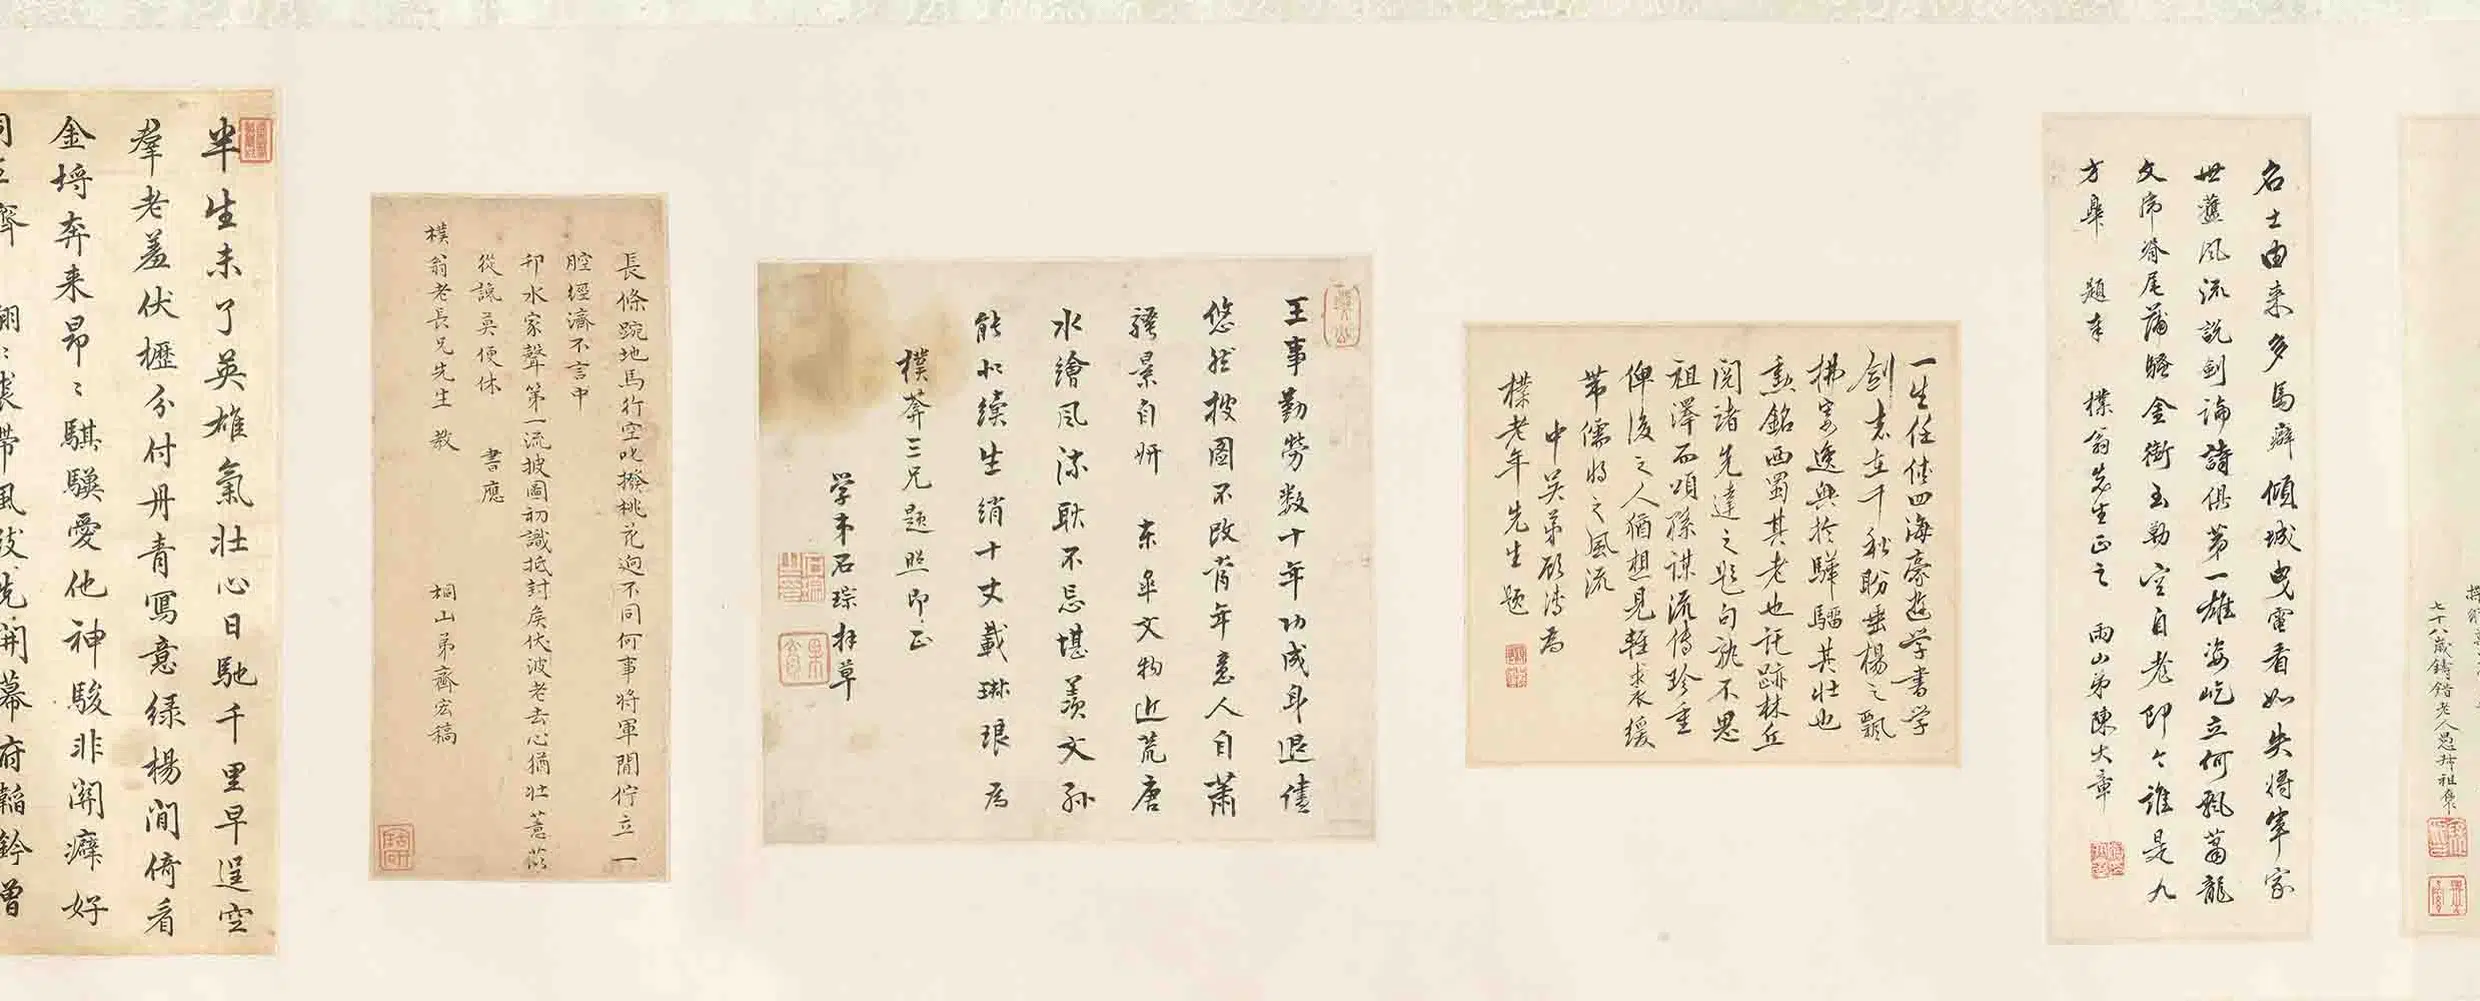 七十八歲鑄錯老人
名士由来多馬癖傾城曳電看如失將軍家
世舊風流說劍論詩俱第一雄姿屹立何飄蕭龍
文虎脊尾蒲騷金銜玉勒空自老即今誰是九
方皋 題奉 樸翁先生正之 雨山弟陳大章
一生任俠四海豪遊学書学
劍志在千秋盼垂楊之飄
拂寄逸興於驊騮其壮也
勳銘西蜀其老也託跡林丘
閱諸先達之題句孰不思
祖澤而頌孫謀流傳珍重
俾後之人猶想見輕裘緩
帶儒將之風流
中吴弟顾濤為
樸老年先生題
王事勤勞数十年功成身退倩
悠然披圖不改當年意人自蕭
疎景自妍 东皋文物近荒唐
水繪風流耿不忘堪羡文孙
能似續生綃十丈載琳琅 为
樸莽三兄題照即正
学末石琮拜草
長條踠地馬行空叱撥桃花迥不同何事将軍閒佇立一
腔經濟不言中
邗水家聲第一流披圖初識抵封矦伏波老去心猶壮薏苡
從讒莫便休 書應
樸翁老長兄先生 教
桐山弟齊宏稿
半生未了英雄氣壮心日馳千里早逞空
羣老羞伏櫪分付丹青寫意緑楊澗倚看
金埒奔来昂〻騏驥愛他神駿非關癖好